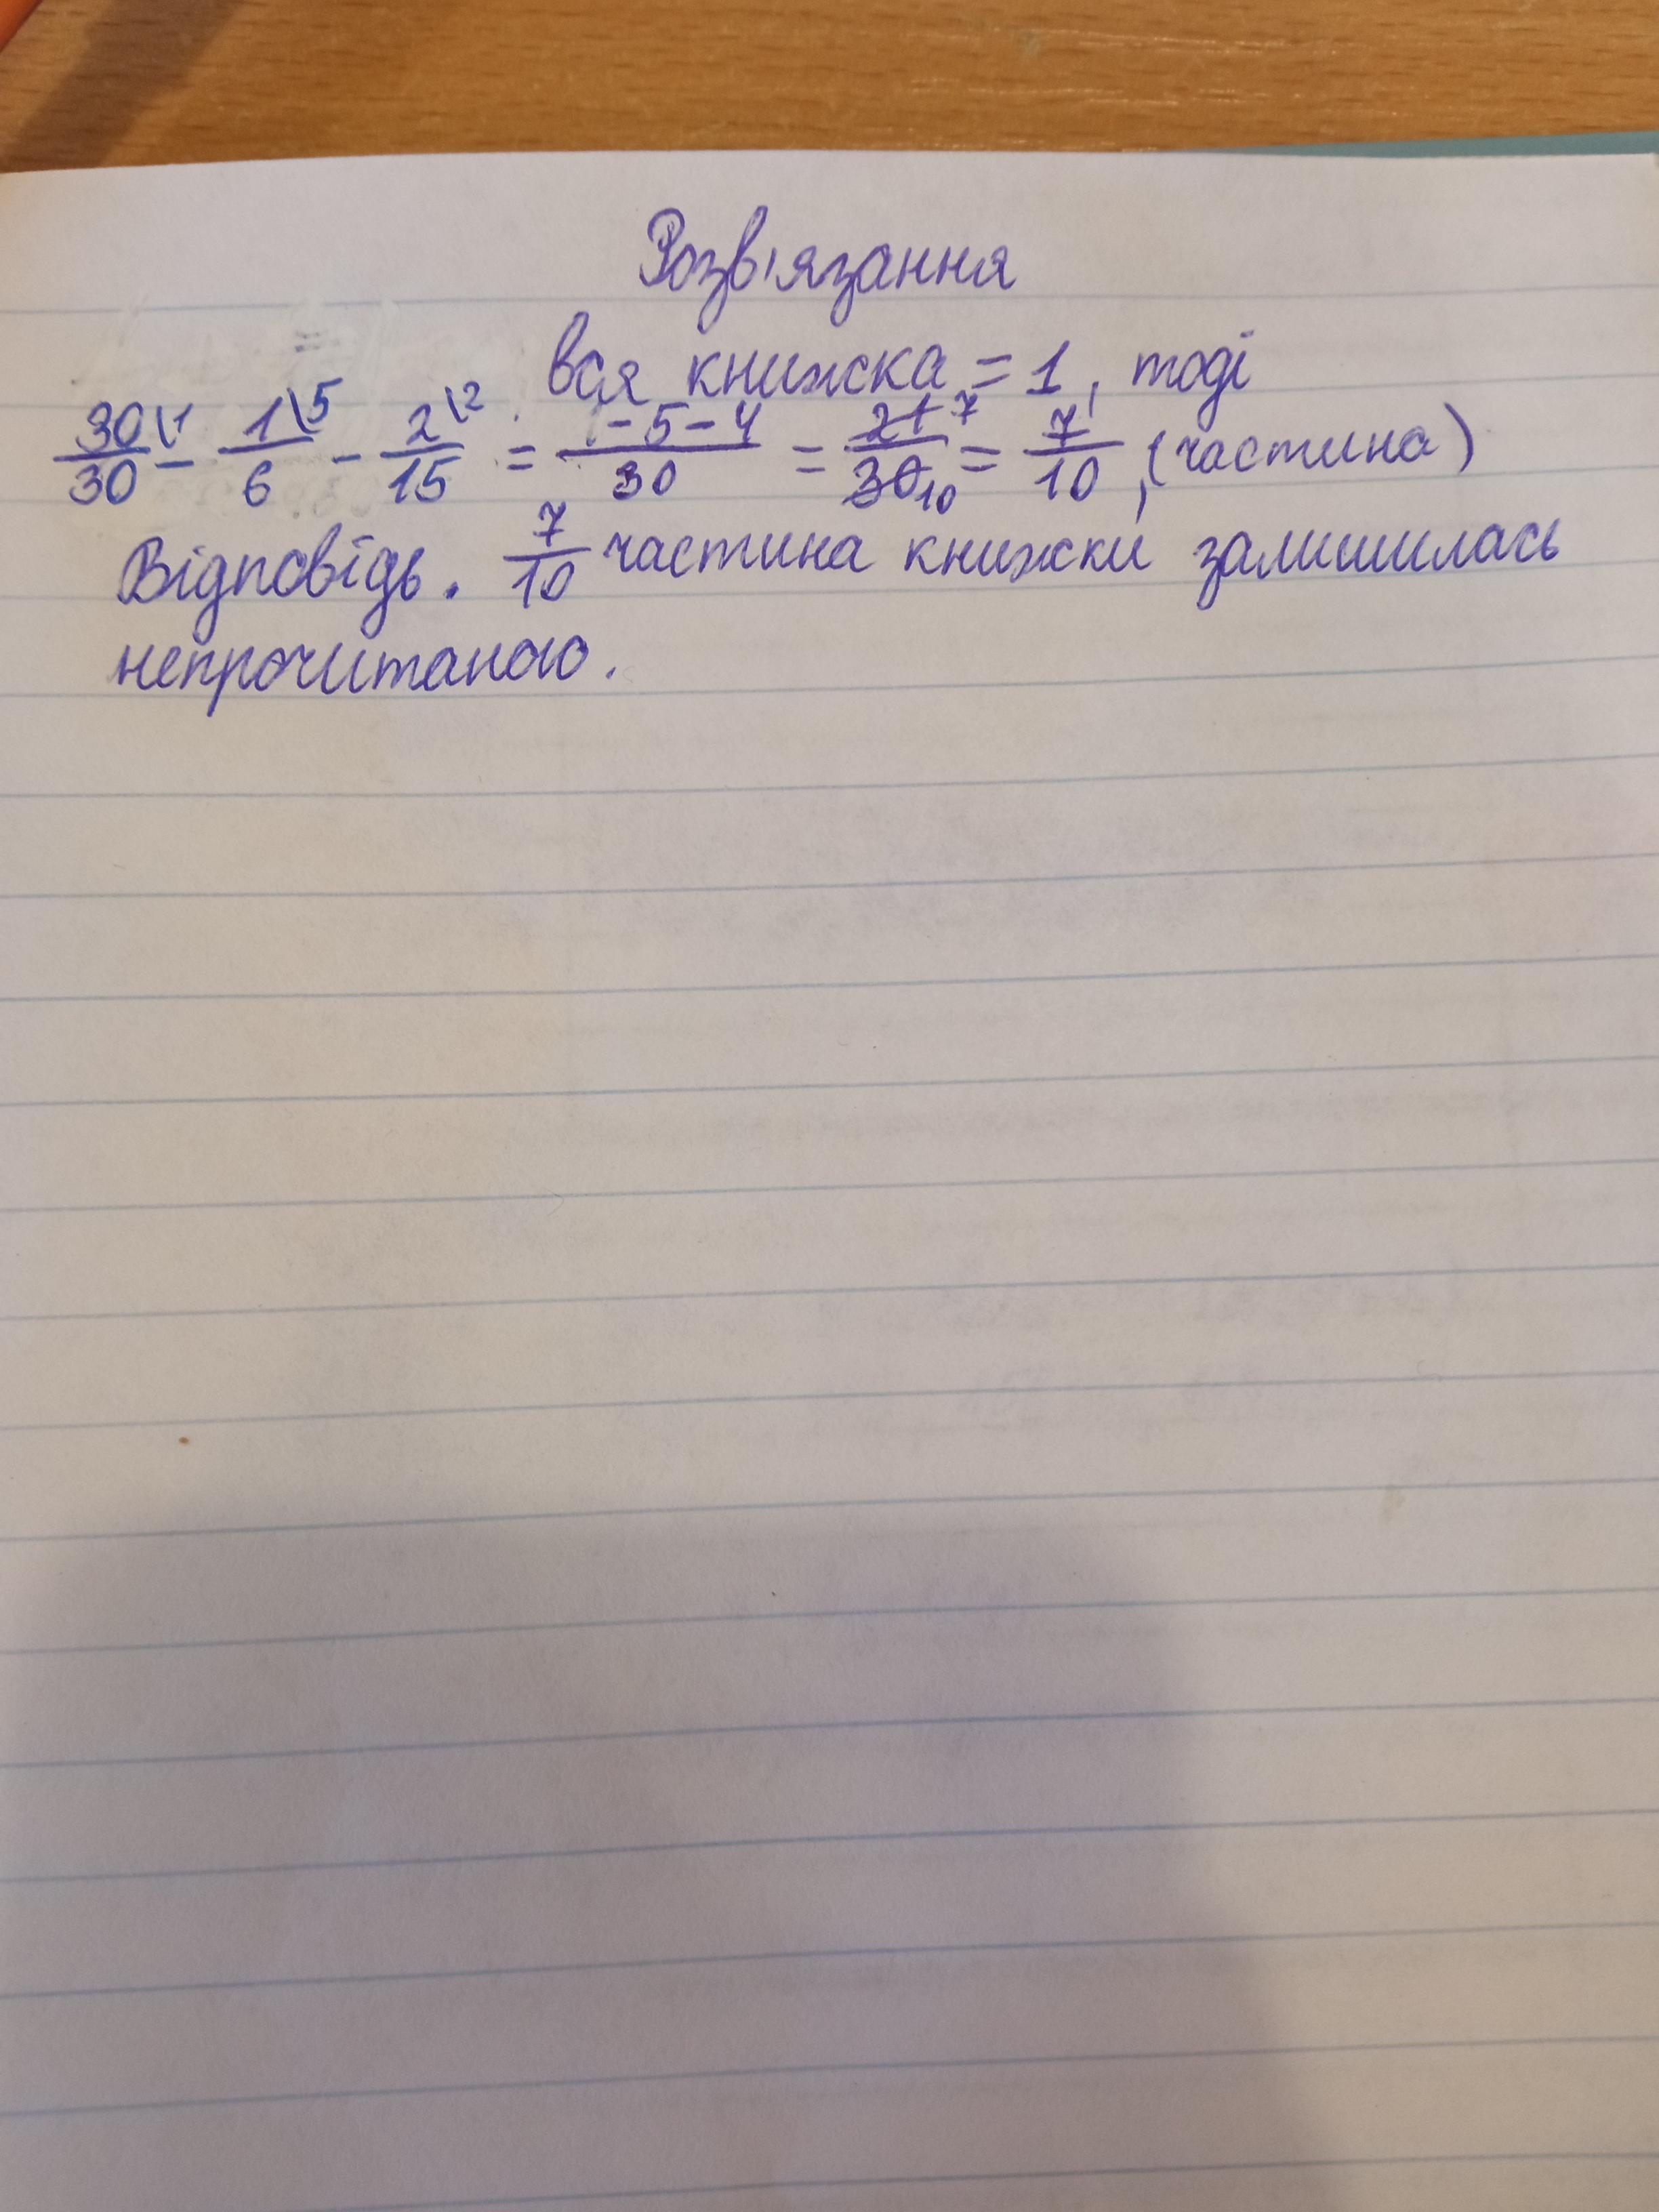 Розв'язання
вся книжка = 1, тоді
30/30 \1 - 1/6 \5 - 2/15 \2 = -5-4/30 = 21/30 7 10 = 7/10, (частина)
Відповідь. 7/10 частина книжки залишилась
непрочитаною.